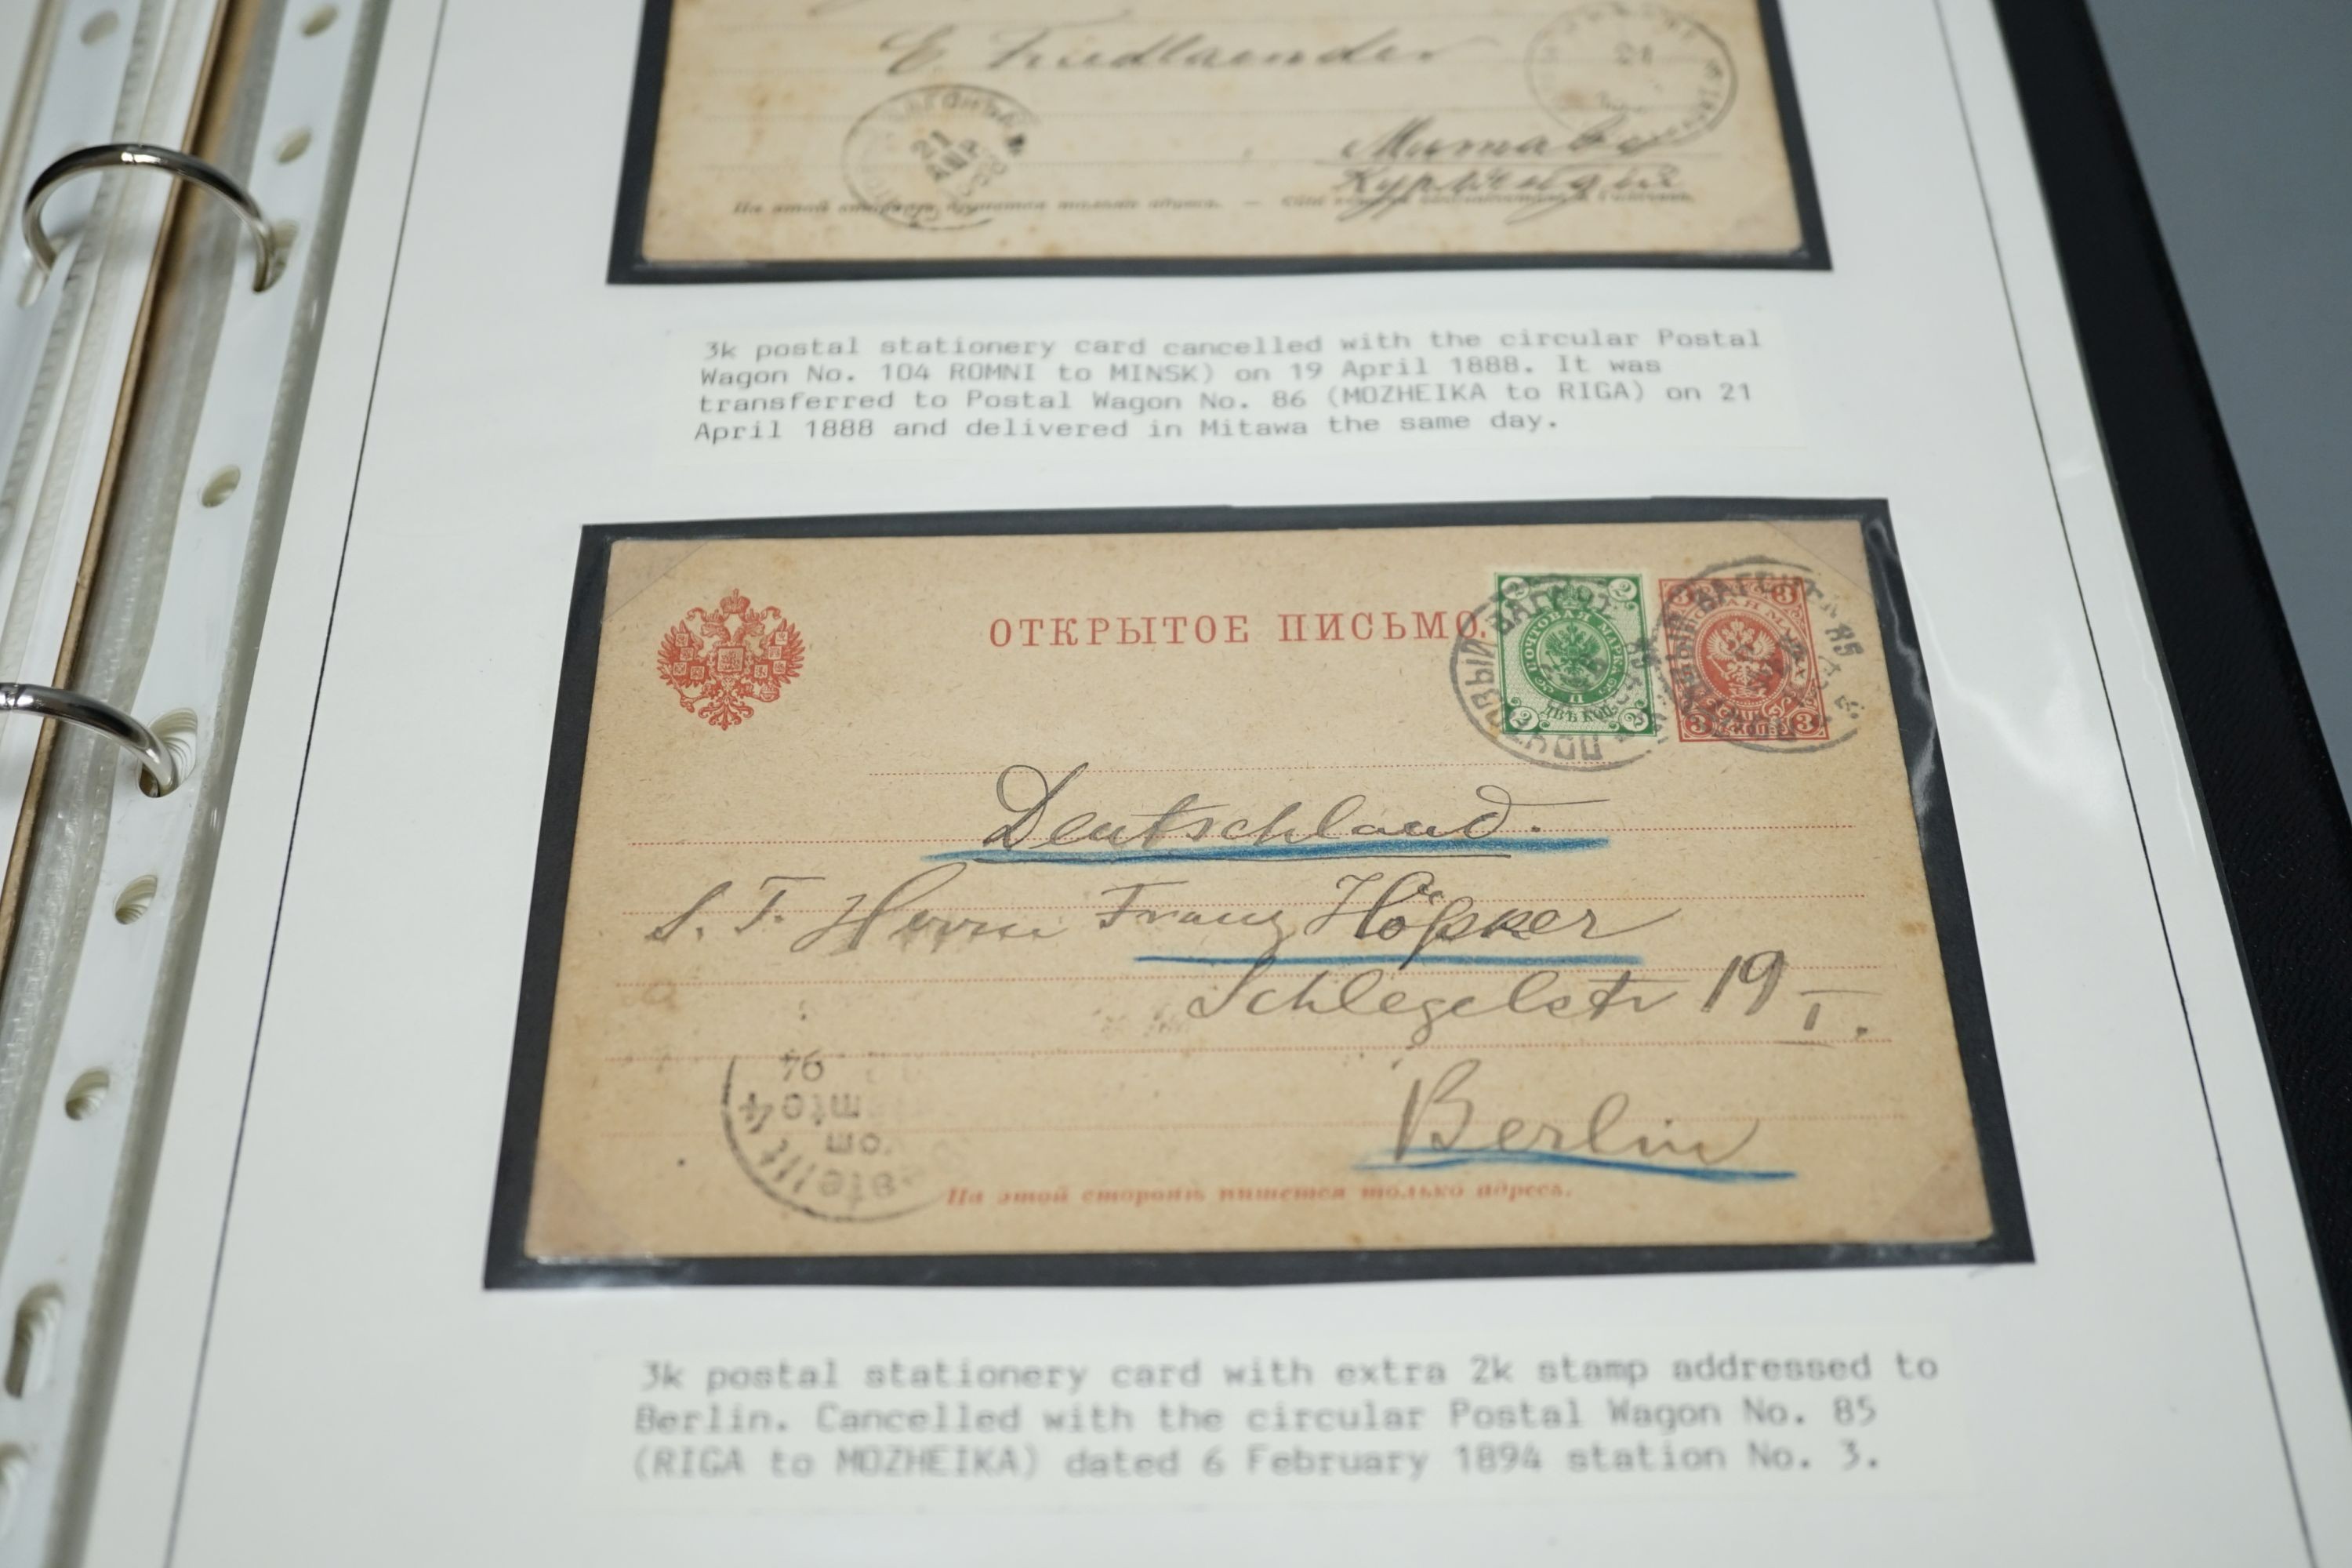 E. Friedlaender
21
21
АПР
1888
Митава
На этой сторонѣ пишется только адресъ. —
3k postal stationery card cancelled with the circular Postal
Wagon No. 104 ROMNI to MINSK) on 19 April 1888. It was
transferred to Postal Wagon No. 86 (MOZHEIKA to RIGA) on 21
April 1888 and delivered in Mitawa the same day.
ОТКРЫТОЕ ПИСЬМО.
2 2
ПОЧТОВАЯ МАРКА
ДВѢ КОП.
2 2
ПОЧТОВЫЙ ВАГОНЪ
3 3
3 3
ВАГОНЪ 85
Deutschland.
S. T. Herrn Franz Höpker
Schlegelstr 19 I.
Berlin
94
На этой сторонѣ пишется только адресъ.
3k postal stationery card with extra 2k stamp addressed to
Berlin. Cancelled with the circular Postal Wagon No. 85
(RIGA to MOZHEIKA) dated 6 February 1894 station No. 3.